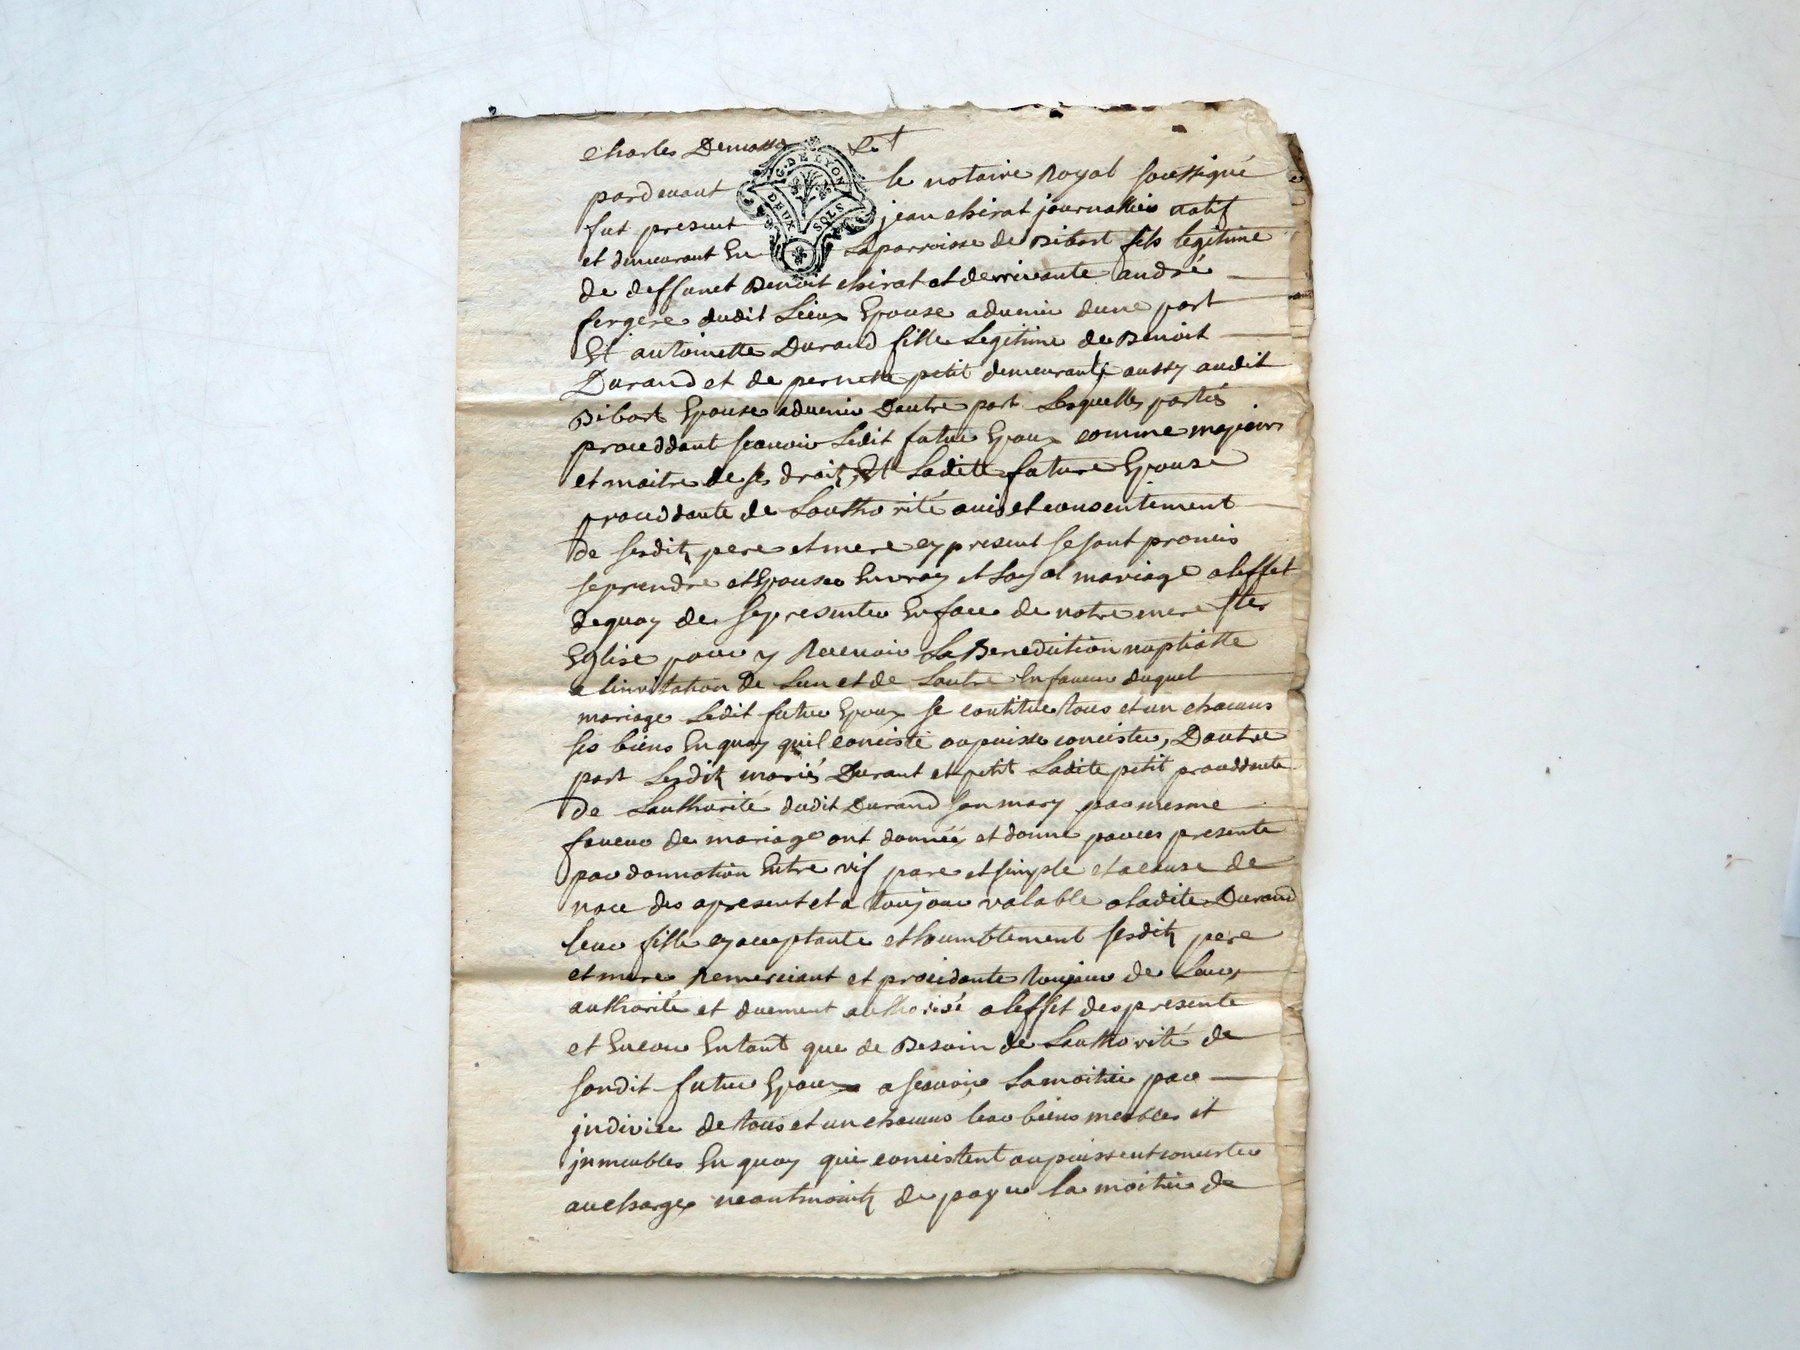 charles Demasso
G. DE LYON
DEUX SOLS
pardevant le notaire Royal soussigné
fut present jean chirat journallier natif
et demeurant En la parroisse de Bibost fils legitime
de deffunct Benoit chirat et de vivante andrée
fergere dudit Lieux Epoux aduenir dune part
Et antoinette Durand fille Legitime de Benoit
Durand et de pernette petit demeurants aussy audit
Bibost Epouse aduenir Dautre part Lesquelles partiés
proceddant scauoir Ledit futur Epoux comme majeur
et maitre de ses droitz, Et Laditte future Epouse
proceddante de Lauthorité auis et consentement
de sesditz pere et mere cy present se sont promis
se prendre et Epouser En vray et Loyal mariage a leffet
de quoy de se presenter En face de notre mere ste
Eglise pour y Receuoir La Benediction nuptialle
a linvitation de Lun et de Lautre En faueur duquel
mariage Ledit futur Epoux se contitue tous et un chacuns
ses biens En quoy quil conciste ou puisse concister, Dautre
part Lesditz mariés Durant et petit Ladite petit proceddante
de Lauthorité dudit Durand son mary par mesme
faueur de mariage ont donnée et donne par ces presente
par donnation Entre vif pure et simple et a cause de
noce des apresent et a toujour valable a ladite Durand
leur fille cy acceptante et humblement sesditz pere
et mere Remerciant et procidante toujour de Leur
authorité et duement authorisé a leffet des presente
et Encore En tant que de Besoin de Lauthorité de
sondit futur Epoux a scauoir, La moitiée par
jndivice de tous et un chacuns leur biens meubles et
jnmeubles En quoy qui concistent ou puissent concister
au charge neantmointz de payer la moitiée de